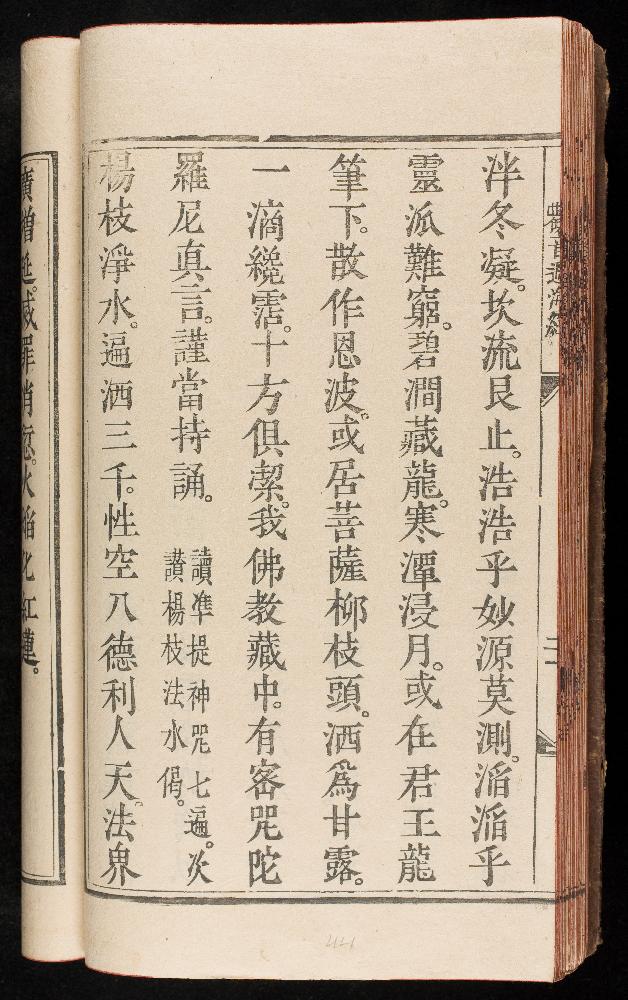 泮冬凝。坎流艮止。浩浩乎妙源莫測。滔滔乎
靈泒難窮。碧澗藏龍。寒潭浸月。或在君王龍
筆下。散作恩波。或居菩薩柳枝頭。洒為甘露。
一滴纔霑。十方俱潔。我佛教藏中。有密咒陀
羅尼真言。謹當持誦。
讀準提神咒七遍。次
讃楊枝法水偈。
楊枝淨水。遍洒三千。性空八德利人天。法界
廣增延。滅罪消愆。火焰化紅蓮。